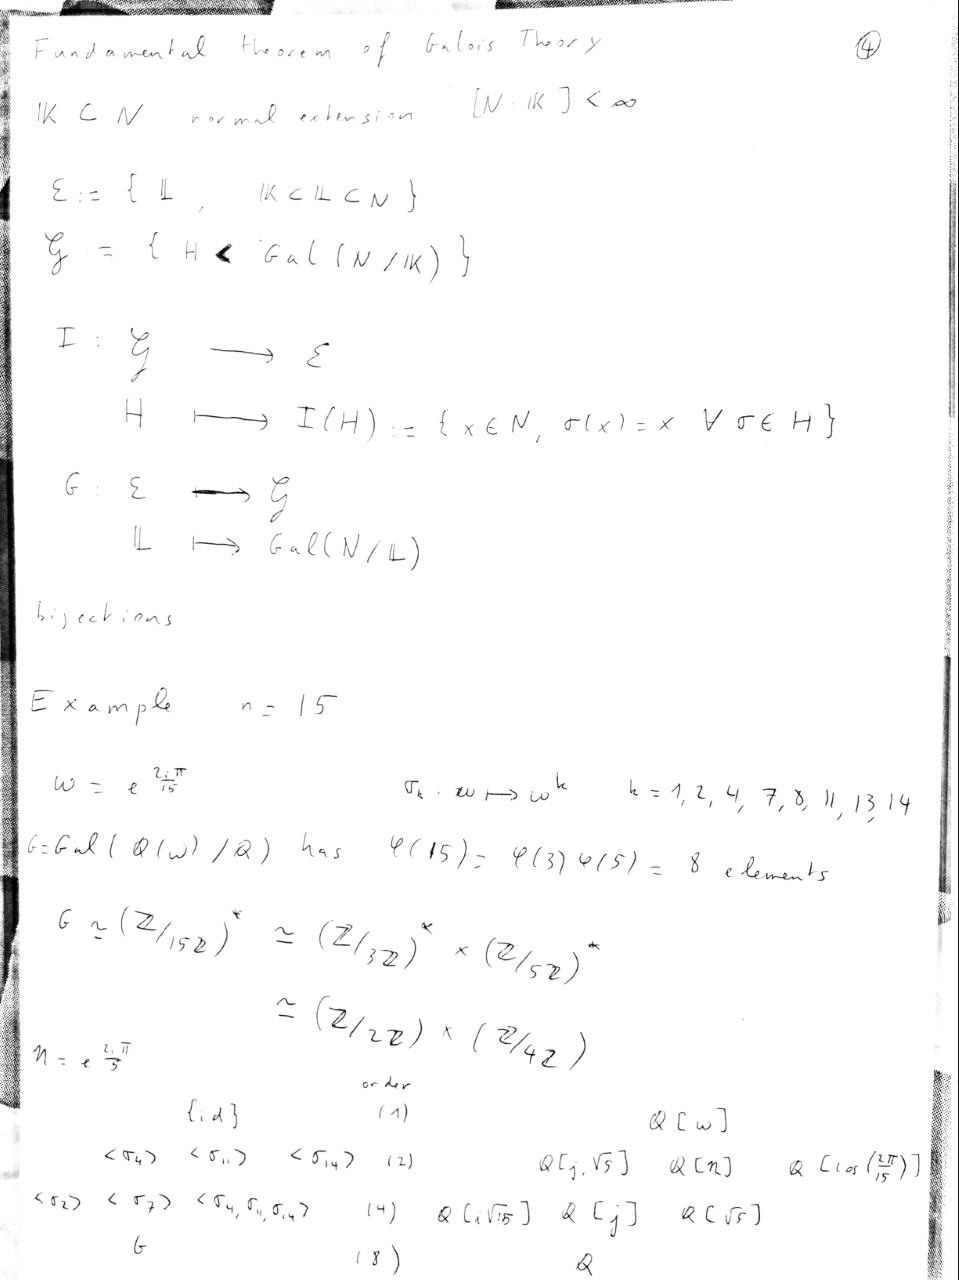 Fundamental theorem of Galois Theory ④
𝕂 ⊂ N normal extension [N : 𝕂] < ∞
ℰ := { 𝕃, 𝕂 ⊂ 𝕃 ⊂ N }
𝒢 = { H < Gal(N/𝕂) }
I : 𝒢 ⟶ ℰ
H ⟼ I(H) := { x ∈ N, σ(x) = x ∀ σ ∈ H }
G : ℰ ⟶ 𝒢
𝕃 ⟼ Gal(N/𝕃)
bijections
Example n = 15
ω = e^{2iπ/15} σₖ : ω ⟼ ω^k k = 1, 2, 4, 7, 8, 11, 13, 14
G = Gal(Q(ω)/Q) has φ(15) = φ(3)φ(5) = 8 elements
G ≃ (ℤ/15ℤ)* ≃ (ℤ/3ℤ)* × (ℤ/5ℤ)*
≃ (ℤ/2ℤ) × (ℤ/4ℤ)
η = e^{2iπ/5}
order
{id} (1) Q[ω]
<σ₄> <σ₁₁> <σ₁₄> (2) Q[j, √5] Q[η] Q[cos(2π/15)]
<σ₂> <σ₇> <σ₄, σ₁₁, σ₁₄> (4) Q[i√15] Q[j] Q[√5]
G (8) Q